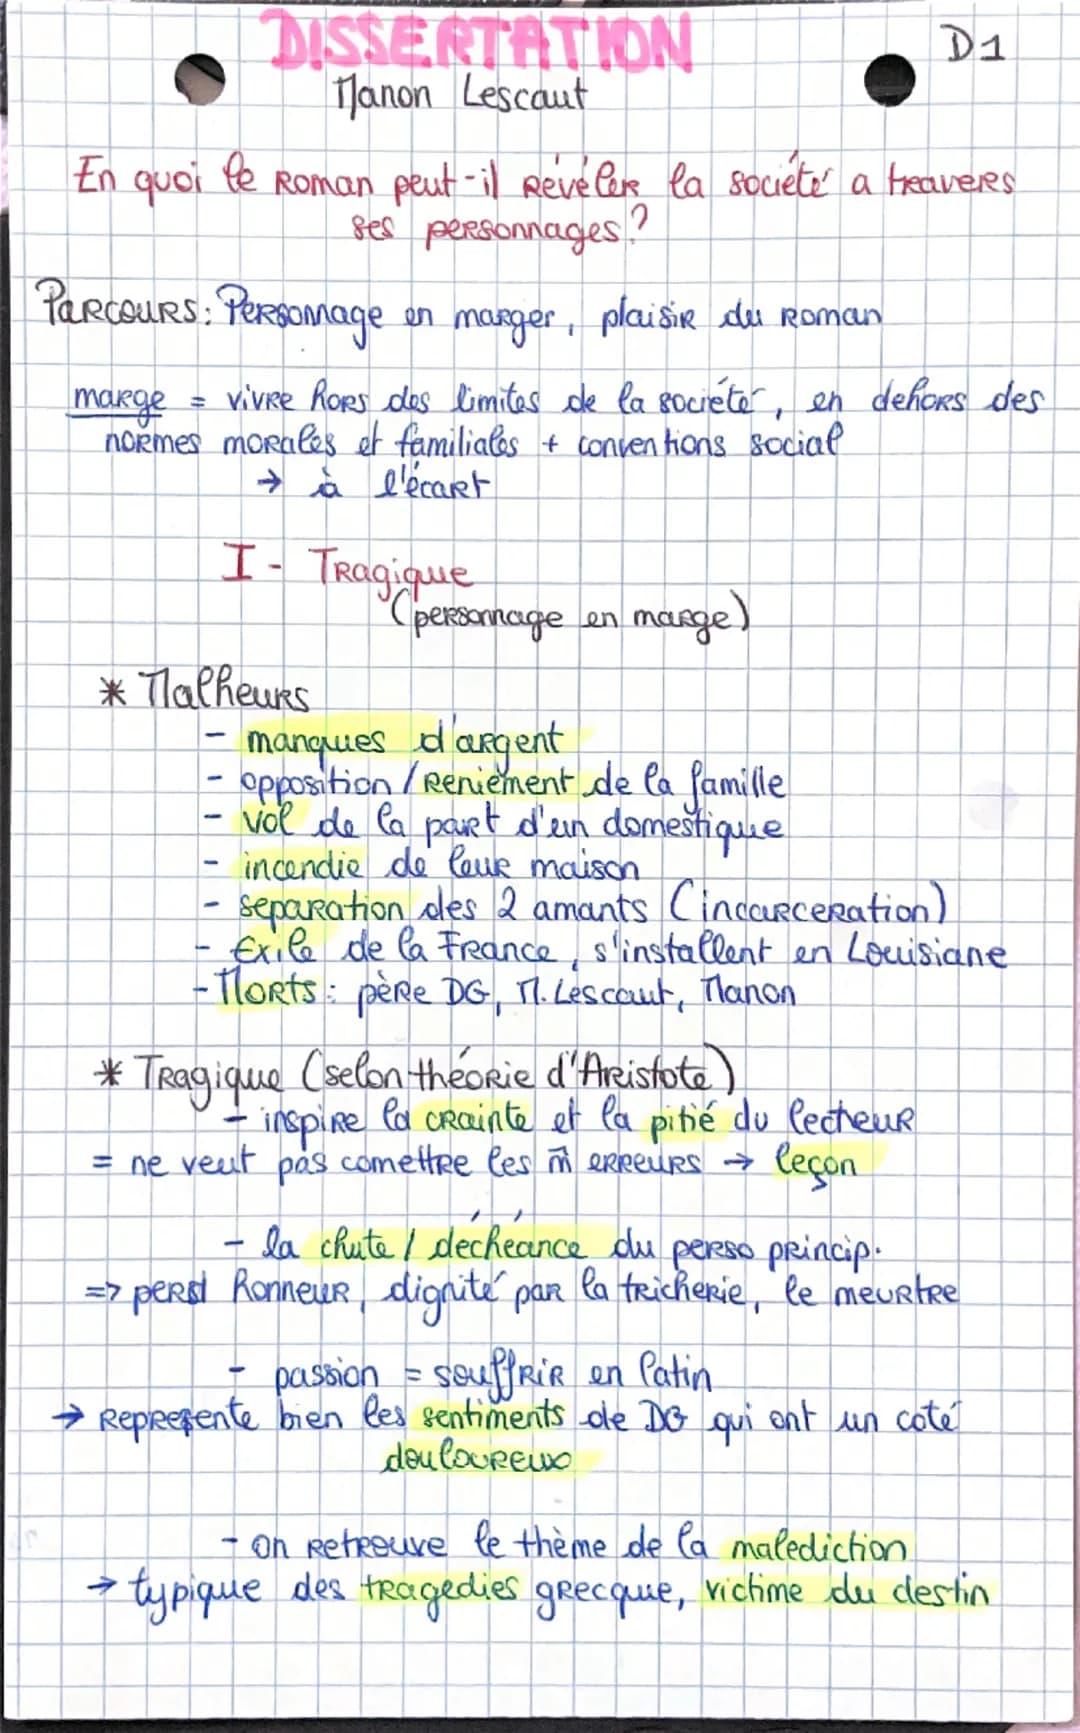 DISSERTATION
D1
Manon Lescaut
En quoi le roman peut-il révéler la société a travers
ses personnages?
Parcours: Personnage en marger, plaisir du roman
marge = vivre hors des limites de la société, en dehors des
normes morales et familiales + conventions social
→ à l'écart
I - Tragique
(personnage en marge)
* Malheurs
- manques d'argent
- opposition / reniement de la famille
- vol de la part d'un domestique
- incendie de leur maison
- separation des 2 amants (incarceration)
- Exile de la France, s'installent en Louisiane
- Morts : père DG, M. Lescaut, Manon
* Tragique (selon théorie d'Aristote)
- inspire la crainte et la pitié du lecteur
= ne veut pas comettre les m̂ erreurs → leçon
- la chute / déchéance du perso princip.
=> perd honneur, dignité par la tricherie, le meurtre
- passion = souffrir en latin
→ Represente bien les sentiments de DG qui ont un coté
douloureux
- on retrouve le thème de la malediction
→ typique des tragedies grecque, victime du destin